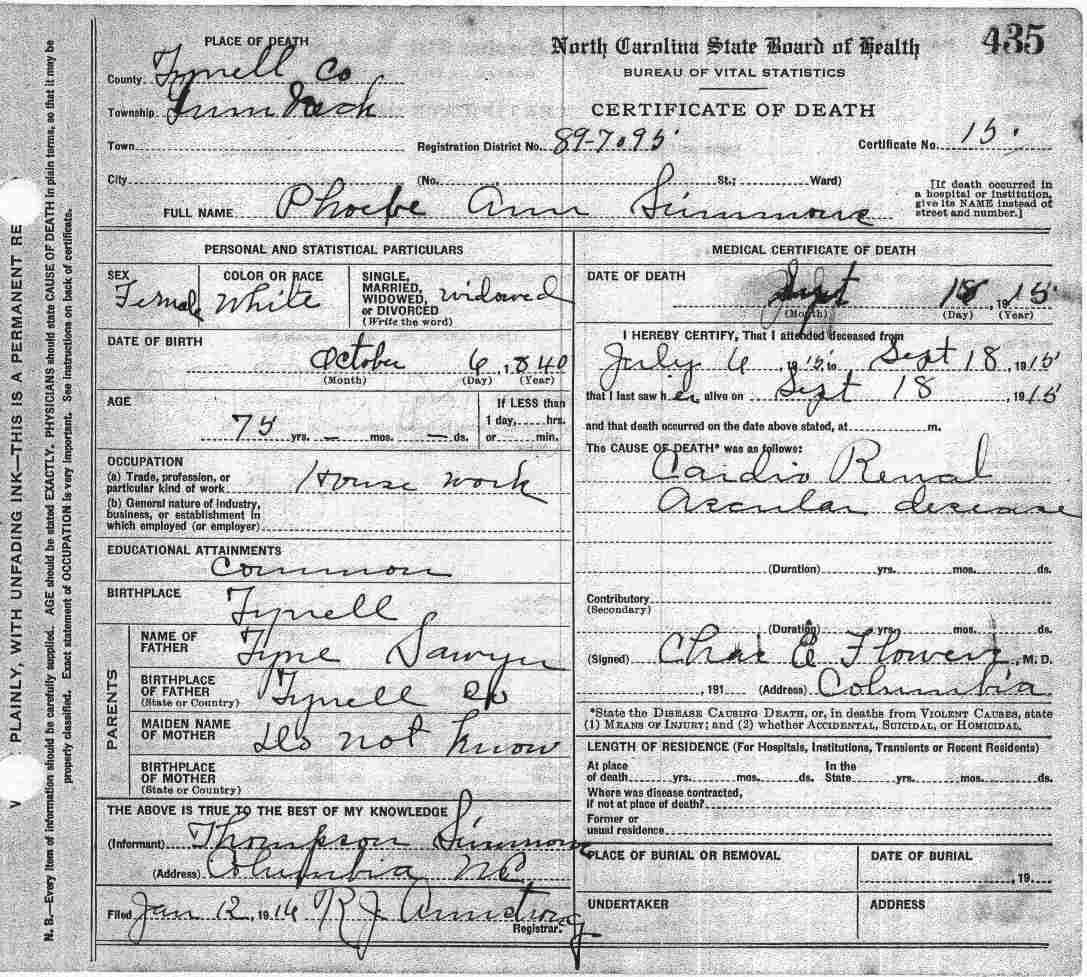 435
North Carolina State Board of Health
BUREAU OF VITAL STATISTICS
CERTIFICATE OF DEATH
PLACE OF DEATH
County Tyrrell Co
Township Gum Neck
Town
Registration District No. 89-7095
Certificate No. 15
City (No. St.; Ward)
[If death occurred in
a hospital or institution,
give its NAME instead of
street and number.]
FULL NAME Phoebe Ann Simmons
PERSONAL AND STATISTICAL PARTICULARS
SEX Female
COLOR OR RACE White
SINGLE,
MARRIED,
WIDOWED,
or DIVORCED
(Write the word)
widowed
DATE OF BIRTH
October 6, 1840
(Month) (Day) (Year)
AGE
75 yrs. — mos. — ds.
If LESS than
1 day, hrs.
or min.
OCCUPATION
(a) Trade, profession, or
particular kind of work House work
(b) General nature of industry,
business, or establishment in
which employed (or employer)
EDUCATIONAL ATTAINMENTS
Common
BIRTHPLACE
Tyrrell
PARENTS
NAME OF
FATHER
Sawyer
BIRTHPLACE
OF FATHER
(State or Country)
Tyrrell Co
MAIDEN NAME
OF MOTHER
Do not know
BIRTHPLACE
OF MOTHER
(State or Country)
THE ABOVE IS TRUE TO THE BEST OF MY KNOWLEDGE
(Informant) Thompson Simmons
(Address) Columbia NC
Filed Jan 12, 1916 R J Armstrong
Registrar.
MEDICAL CERTIFICATE OF DEATH
DATE OF DEATH
Sept 18 1915
(Month) (Day) (Year)
I HEREBY CERTIFY, That I attended deceased from
July 6, 1915, to Sept 18, 1915
that I last saw her alive on Sept 18, 1915
and that death occurred on the date above stated, at m.
The CAUSE OF DEATH* was as follows:
Cardio Renal
disease
(Duration) yrs. mos. ds.
Contributory
(Secondary)
(Duration) yrs. mos. ds.
(Signed) Chas E Flowers, M. D.
, 191 (Address) Columbia
*State the DISEASE CAUSING DEATH, or, in deaths from VIOLENT CAUSES, state
(1) MEANS OF INJURY; and (2) whether ACCIDENTAL, SUICIDAL, or HOMICIDAL.
LENGTH OF RESIDENCE (For Hospitals, Institutions, Transients or Recent Residents)
At place
of death yrs. mos. ds.
In the
State yrs. mos. ds.
Where was disease contracted,
if not at place of death?
Former or
usual residence
PLACE OF BURIAL OR REMOVAL
DATE OF BURIAL
, 19
UNDERTAKER
ADDRESS
V PLAINLY, WITH UNFADING INK—THIS IS A PERMANENT RE
N. B.—Every item of information should be carefully supplied. AGE should be stated EXACTLY. PHYSICIANS should state CAUSE OF DEATH in plain terms, so that it may be
properly classified. Exact statement of OCCUPATION is very important. See instructions on back of certificate.